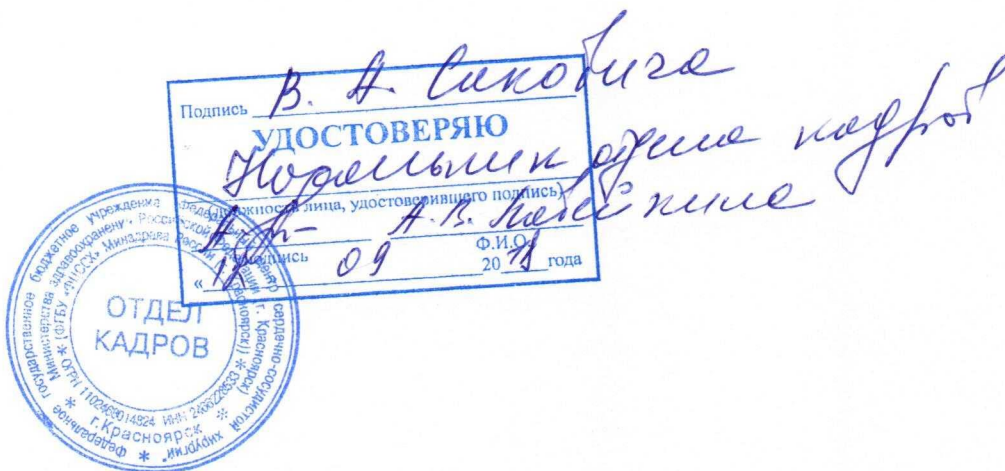 Подпись В. А. Саковича
УДОСТОВЕРЯЮ
Начальник отдела кадров
(должность лица, удостоверившего подпись)
А.В.
подпись Ф.И.О.
« 09 20 года
Федеральное государственное бюджетное учреждение "Федеральный центр сердечно-сосудистой хирургии"
Министерства здравоохранения Российской Федерации (г. Красноярск)
(ФГБУ «ФЦССХ» Минздрава России (г. Красноярск))
ОТДЕЛ
КАДРОВ
г.Красноярск